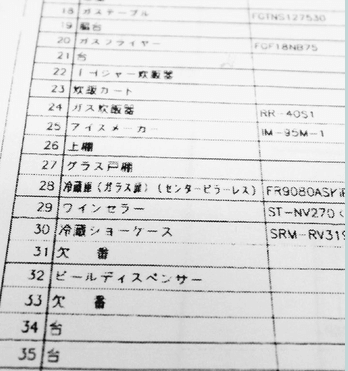 18 ガステーブル FGTNS127530
19 脇台
20 ガスフライヤー FGF18NB75
21 台
22 1イジャー炊飯器
23 炊飯カート
24 ガス炊飯器 RR-40S1
25 アイスメーカー IM-95M-1
26 上棚
27 グラス戸棚
28 冷蔵庫(ガラス扉)(センターピラーレス) FR9080ASK
29 ワインセラー ST-NV270
30 冷蔵ショーケース SRM-RV319
31 欠 番
32 ビールディスペンサー
33 欠 番
34 台
35 台